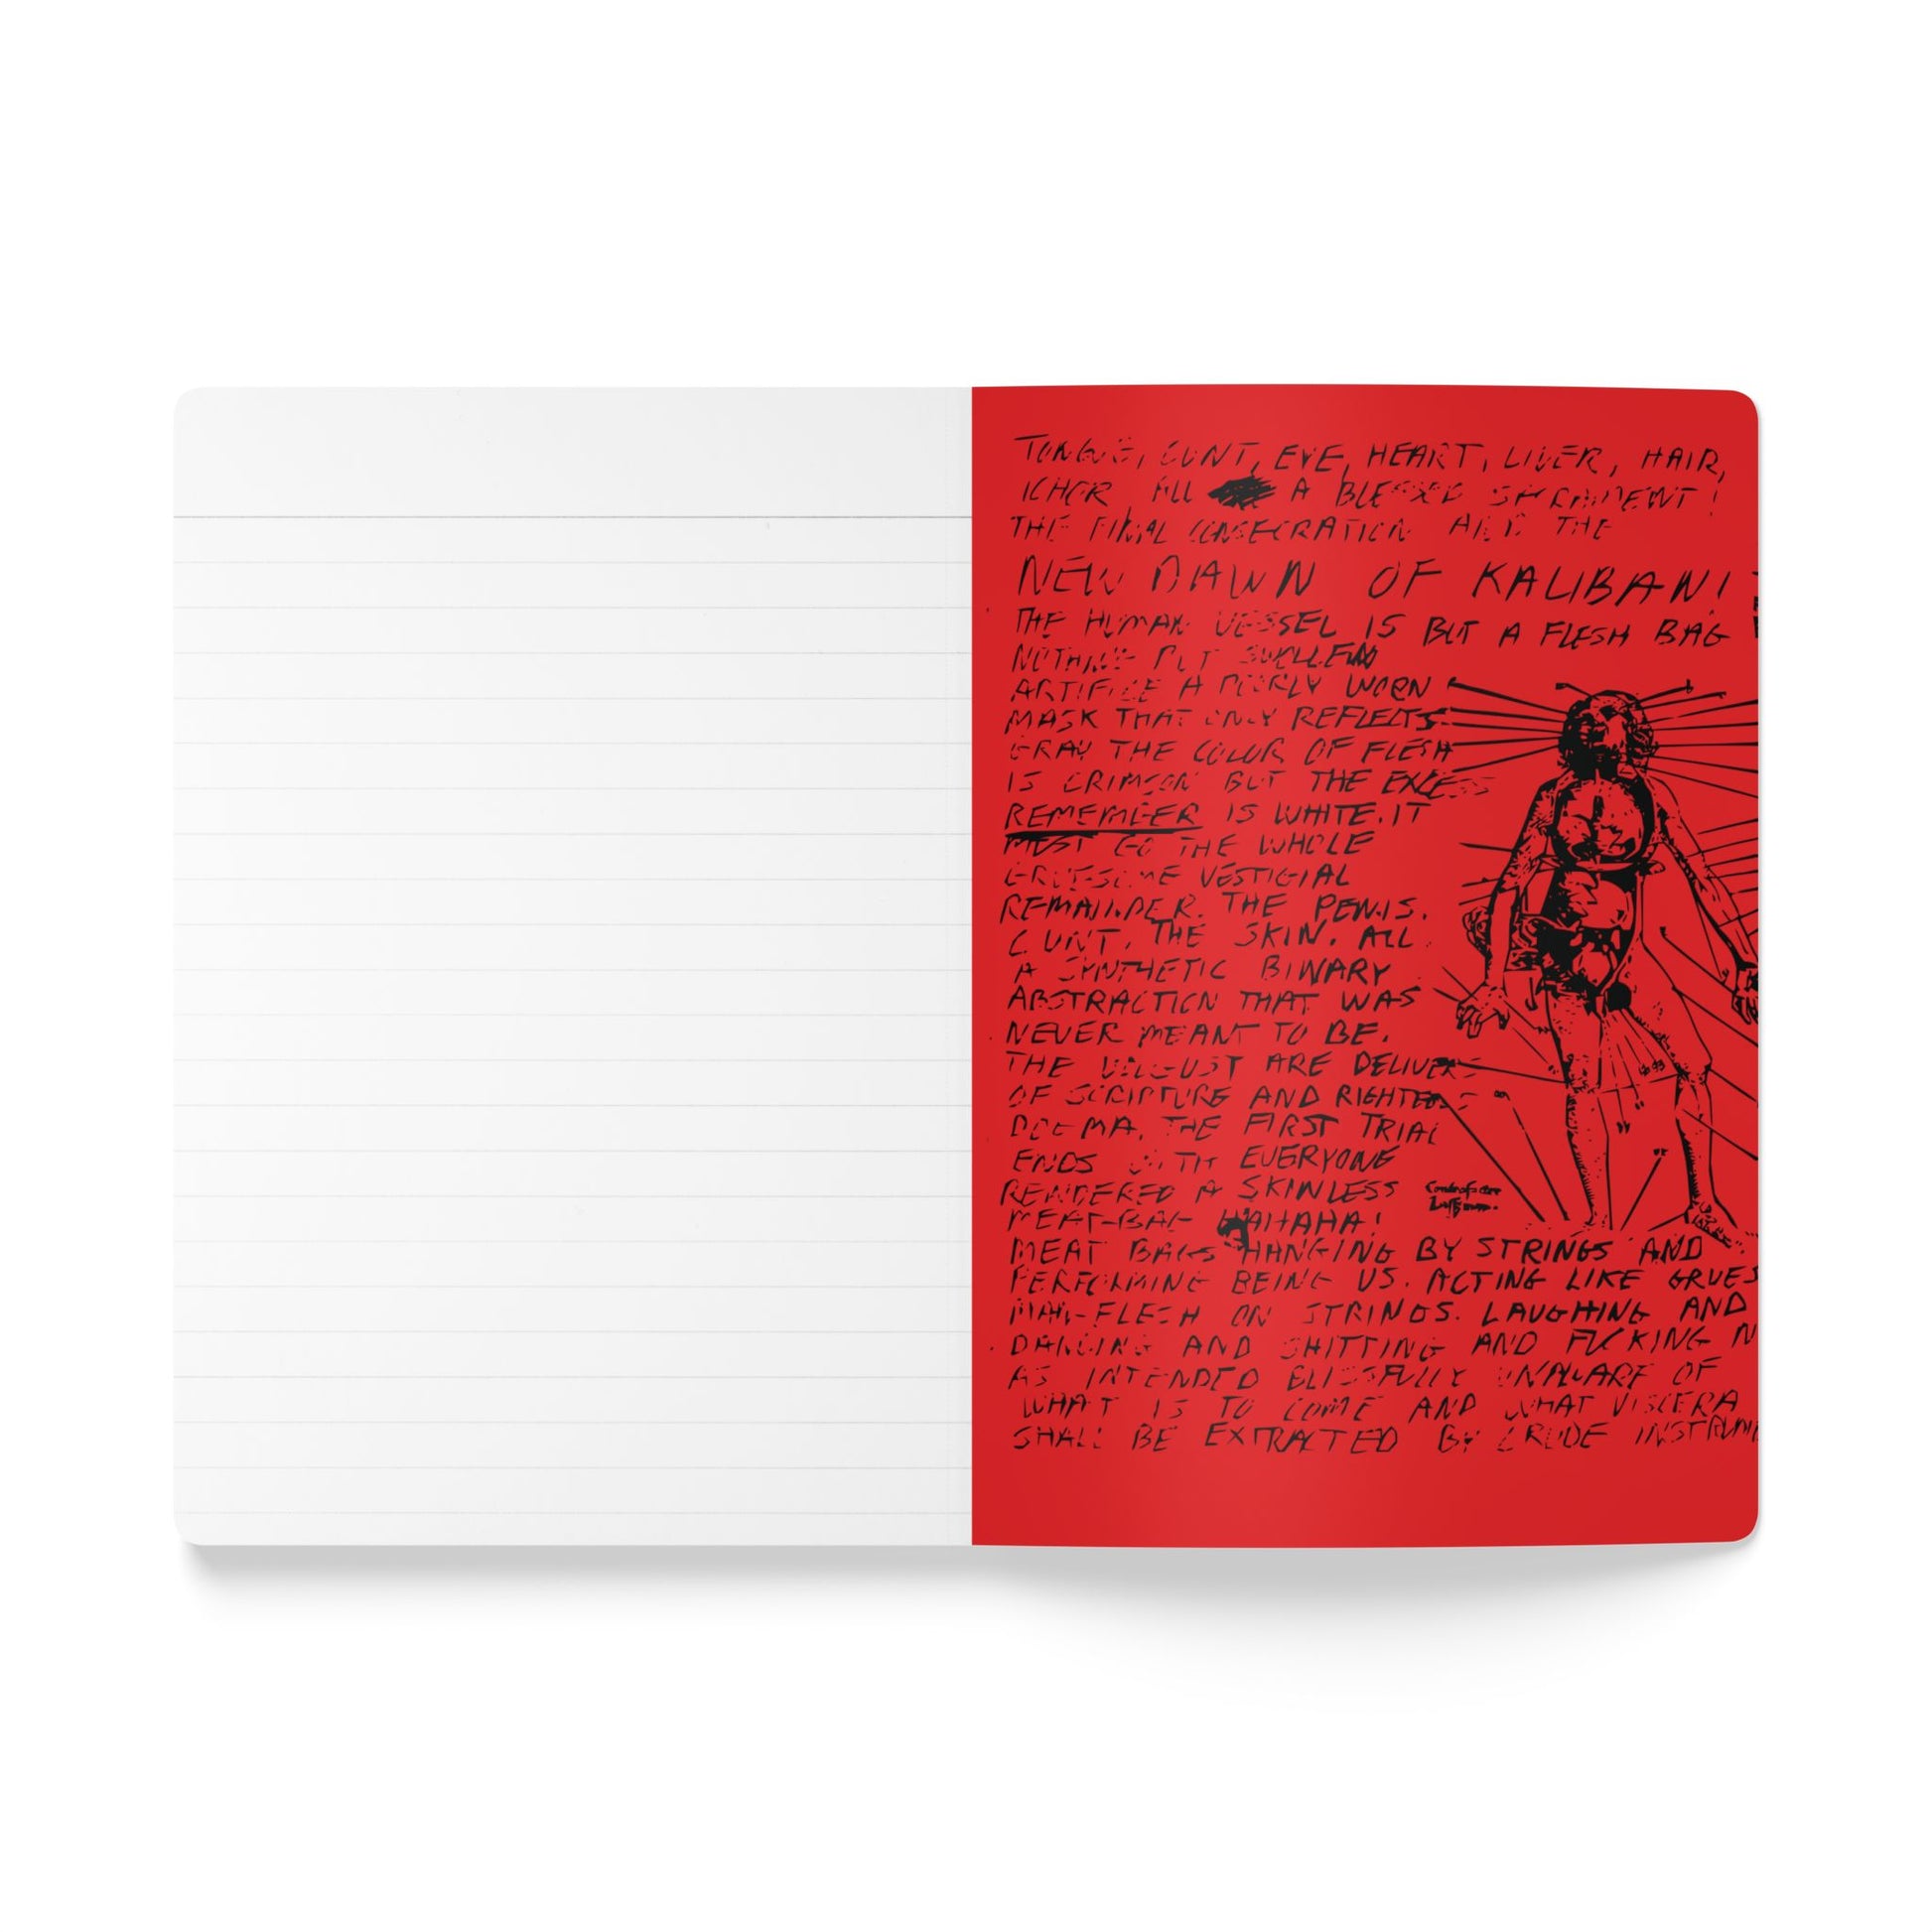 TONGUE, CUNT, EYE, HEART, LIVER, HAIR,
ICHOR ALL A BLESSED SACRAMENT!
THE FINAL CONSECRATION AND THE
NEW DAWN OF KALIBAN!
THE HUMAN VESSEL IS BUT A FLESH BAG
NOTHING BUT SWOLLEN
ARTIFICE A POORLY WORN
MASK THAT ONLY REFLECTS
GRAY THE COLOR OF FLESH
IS CRIMSON BUT THE EXCESS
REMEMBER IS WHITE. IT
MUST GO THE WHOLE
GRUESOME VESTIGIAL
REMAINDER. THE PENIS.
CUNT. THE SKIN. ALL
A SYNTHETIC BINARY
ABSTRACTION THAT WAS
NEVER MEANT TO BE.
THE ARE DELIVERS
OF SCRIPTURE AND
DOGMA. THE FIRST TRIAL
ENDS WITH EVERYONE
RENDERED A SKINLESS
MEAT-BAG HAHAHA!
MEAT BAGS HANGING BY STRINGS AND
PERFORMING BEING US. ACTING LIKE GRUES
MAN-FLESH ON STRINGS. LAUGHING AND
DANCING AND SHITTING AND FUCKING N
AS INTENDED BLISSFULLY UNAWARE OF
WHAT IS TO COME AND WHAT VISCERA
SHALL BE EXTRACTED BY CRUDE INSTRUME